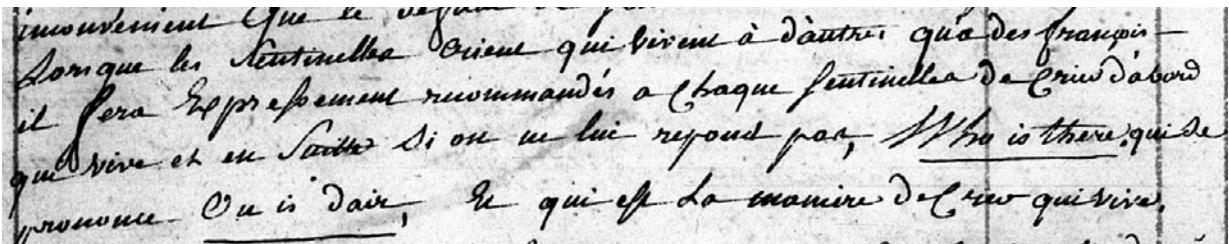 mouvement que le
Lorsque les Sentinelles Crient qui vivent à d'autres qu'a des françois
il sera Expressement recommandés a Chaque Sentinelles de Crier d'abord
qui vive et en Suitte Si on ne lui repond pas, Who is there. qui se
prononce Ou is dair, Et qui est La maniere de Crier qui vive.